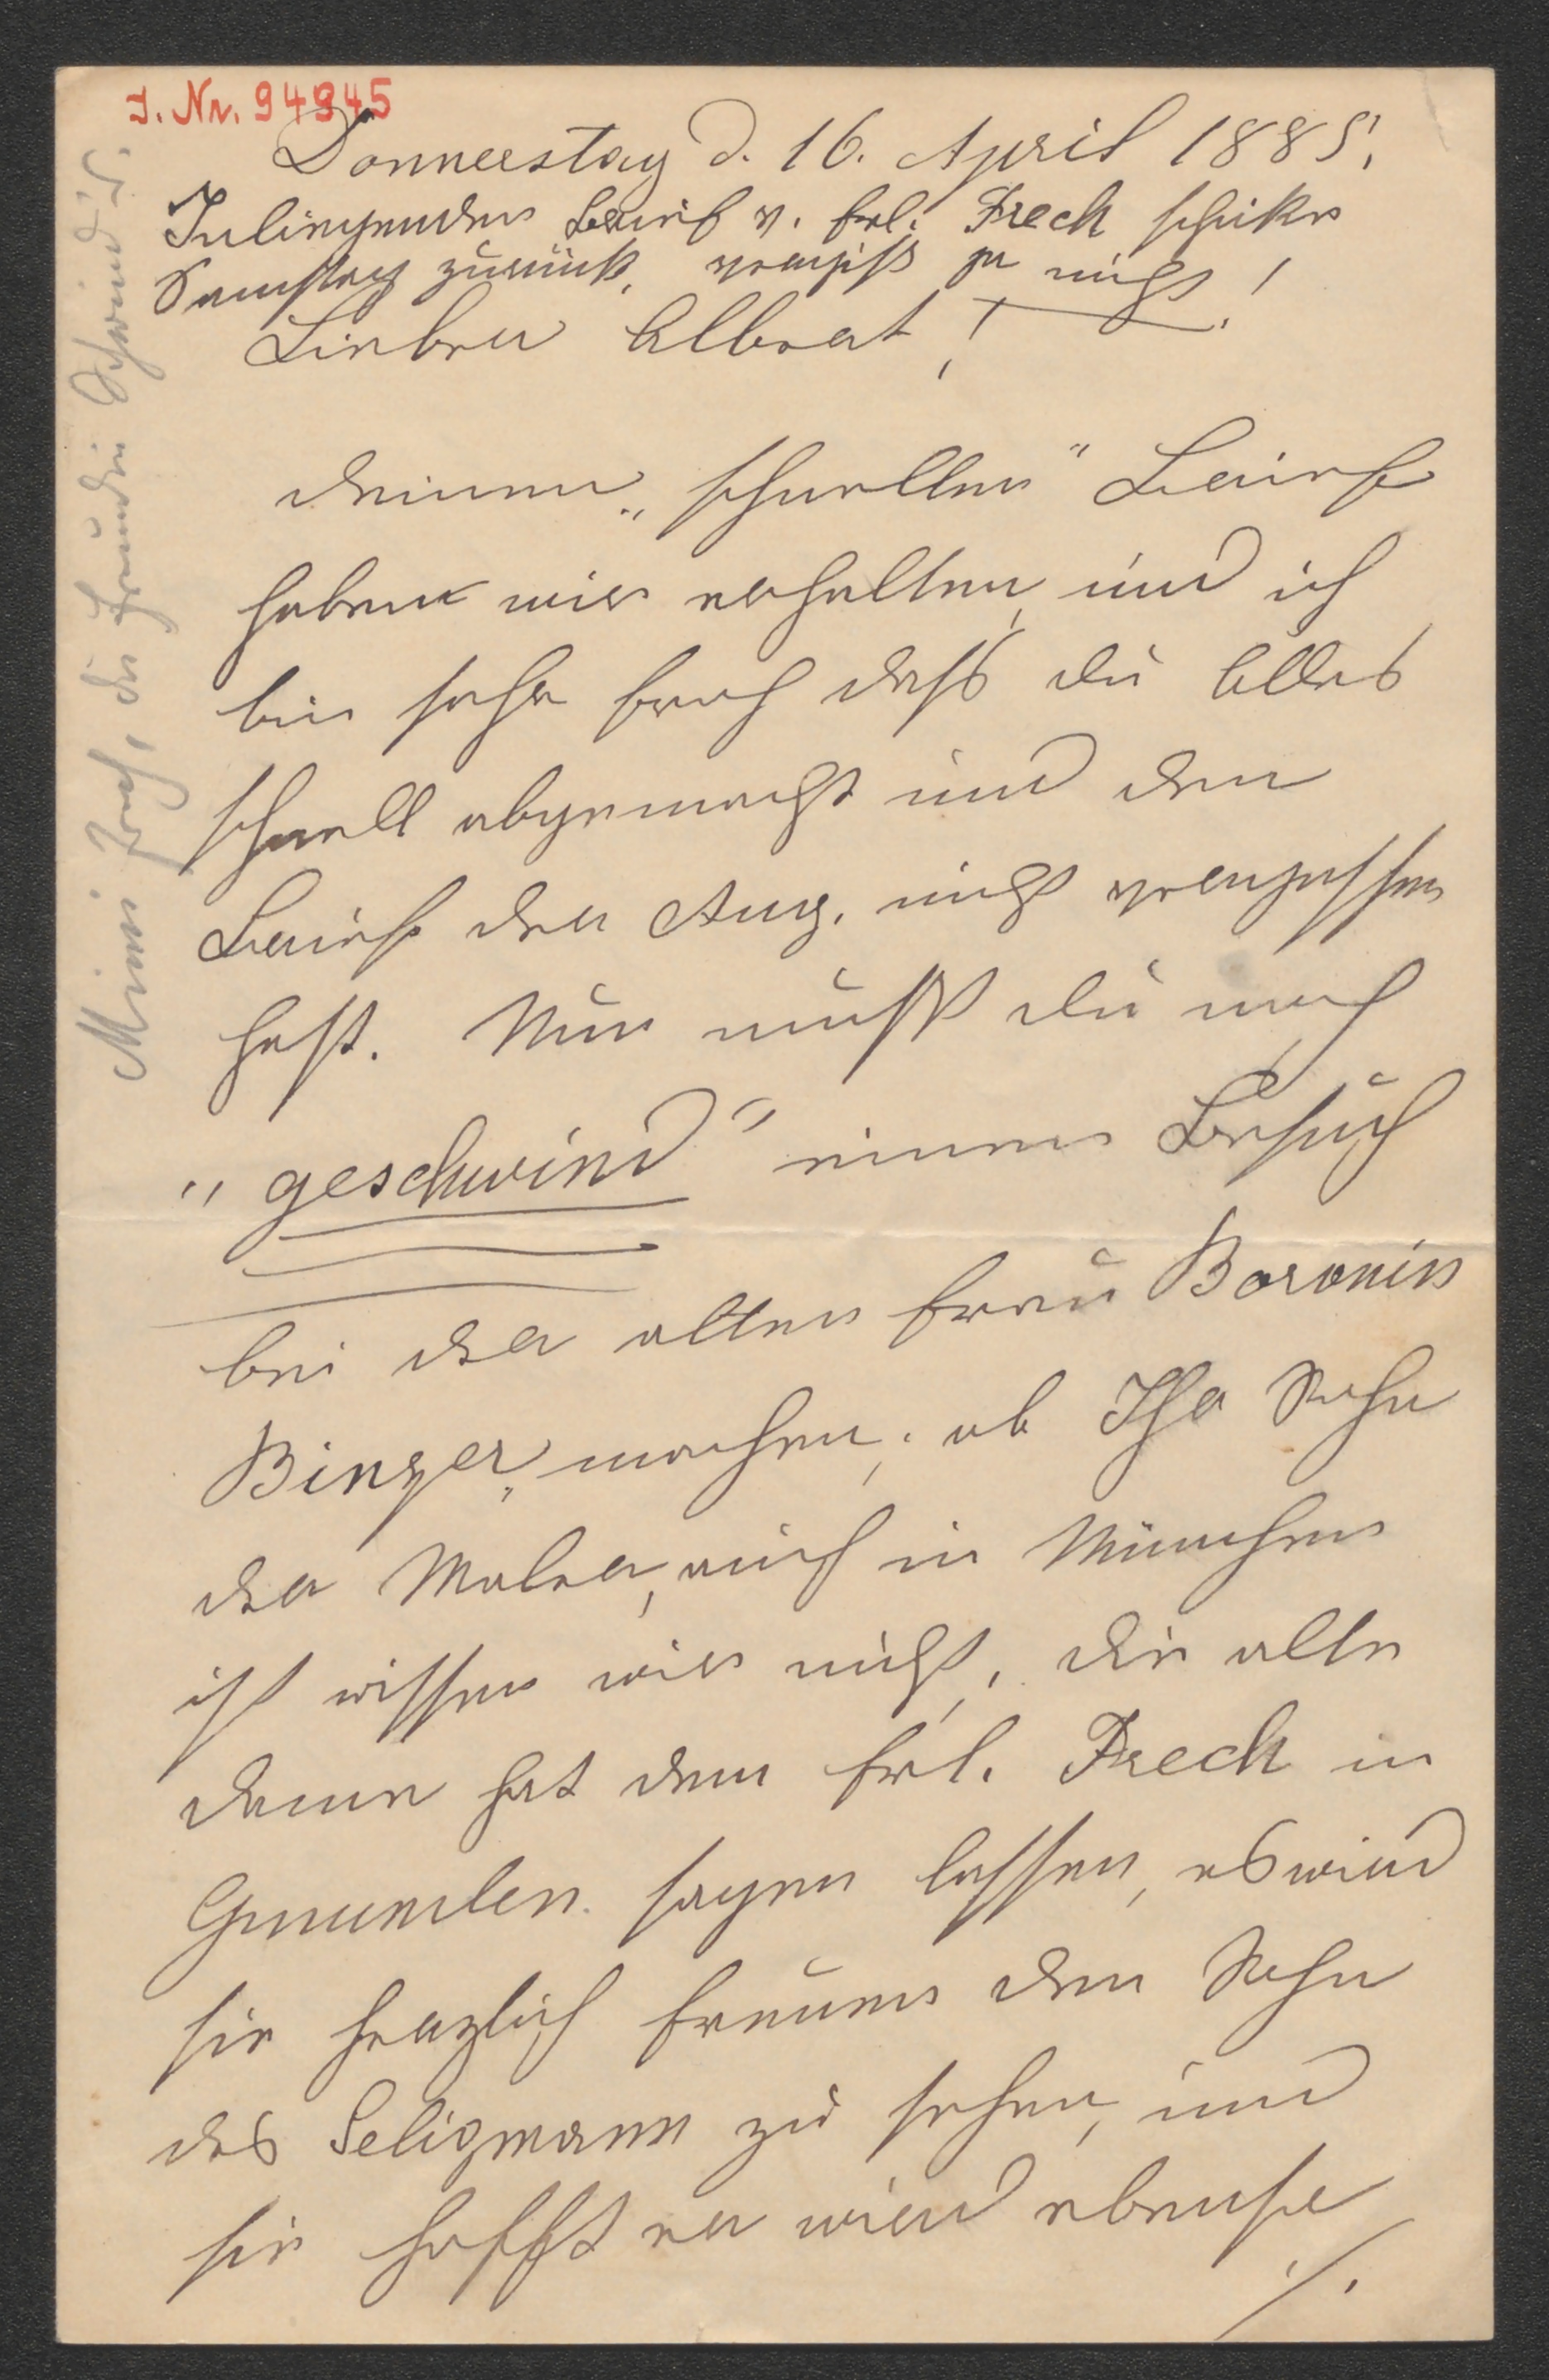 J. Nr. 94945
Donnerstag d. 16. April 1885.
Inliegenden Brief v. Frl. Frech schike
Samstag zurück, vergiß ja nicht!
Lieber Albert!
deinen „schnellen" Brief
haben wir erhalten, und ich
bin sehr froh daß du Alles
schnell abgemacht und den
Brief der Aug. nicht vergessen
hast. Nun mußt du noch
„geschwind" einen Besuch
bei der alten Frau Baronin
Binzer machen, ob Ihr Sohn
der Maler, auch in München
ist wissen wir nicht, die alte
Dame hat dem Frl. Frech in
Gmunden sagen lassen, es wird
sie herzlich freuen den Sohn
des Seligmann zu sehen, und
sie hofft er wird ebenso
./.
Mimi, die Freundin Schwind's.